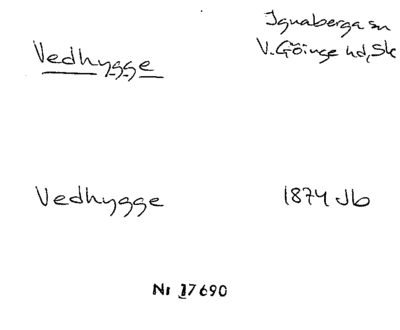 Ignaberga sn
V. Göinge hd, Sk
Vedhygge
Vedhygge
1874 Jb
Nr 17690